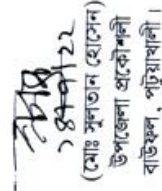 ১৪/৭/২২
(মোঃ সুলতান হোসেন)
উপজেলা প্রকৌশলী
বাউফল, পটুয়াখালী।